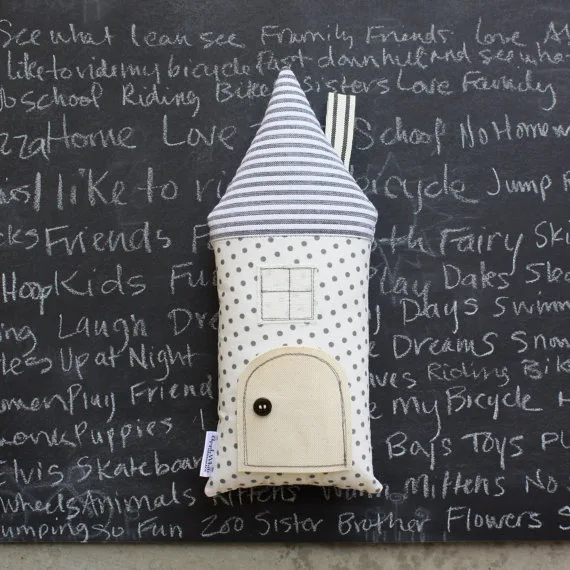 See what I can see Framily Friends Love
I like to ride my bicycle fast downhill and see
school Riding Bike Sisters Love Family
Home Love School No Homew
I like to ri bicycle Jump
Friends F th Fairy Ski
Hoop Kids Fu Play Dates
Laugh Dre Days Swimm
Up at Night e Dreams Snow
Play Friend ves Riding Bik
Puppies my Bicycle H
Elvis Skateboar Boys Toys Pl
Wheels Animals Kittens Warm Mittens No
umping so Fun Zoo Sister Brother Flowers S